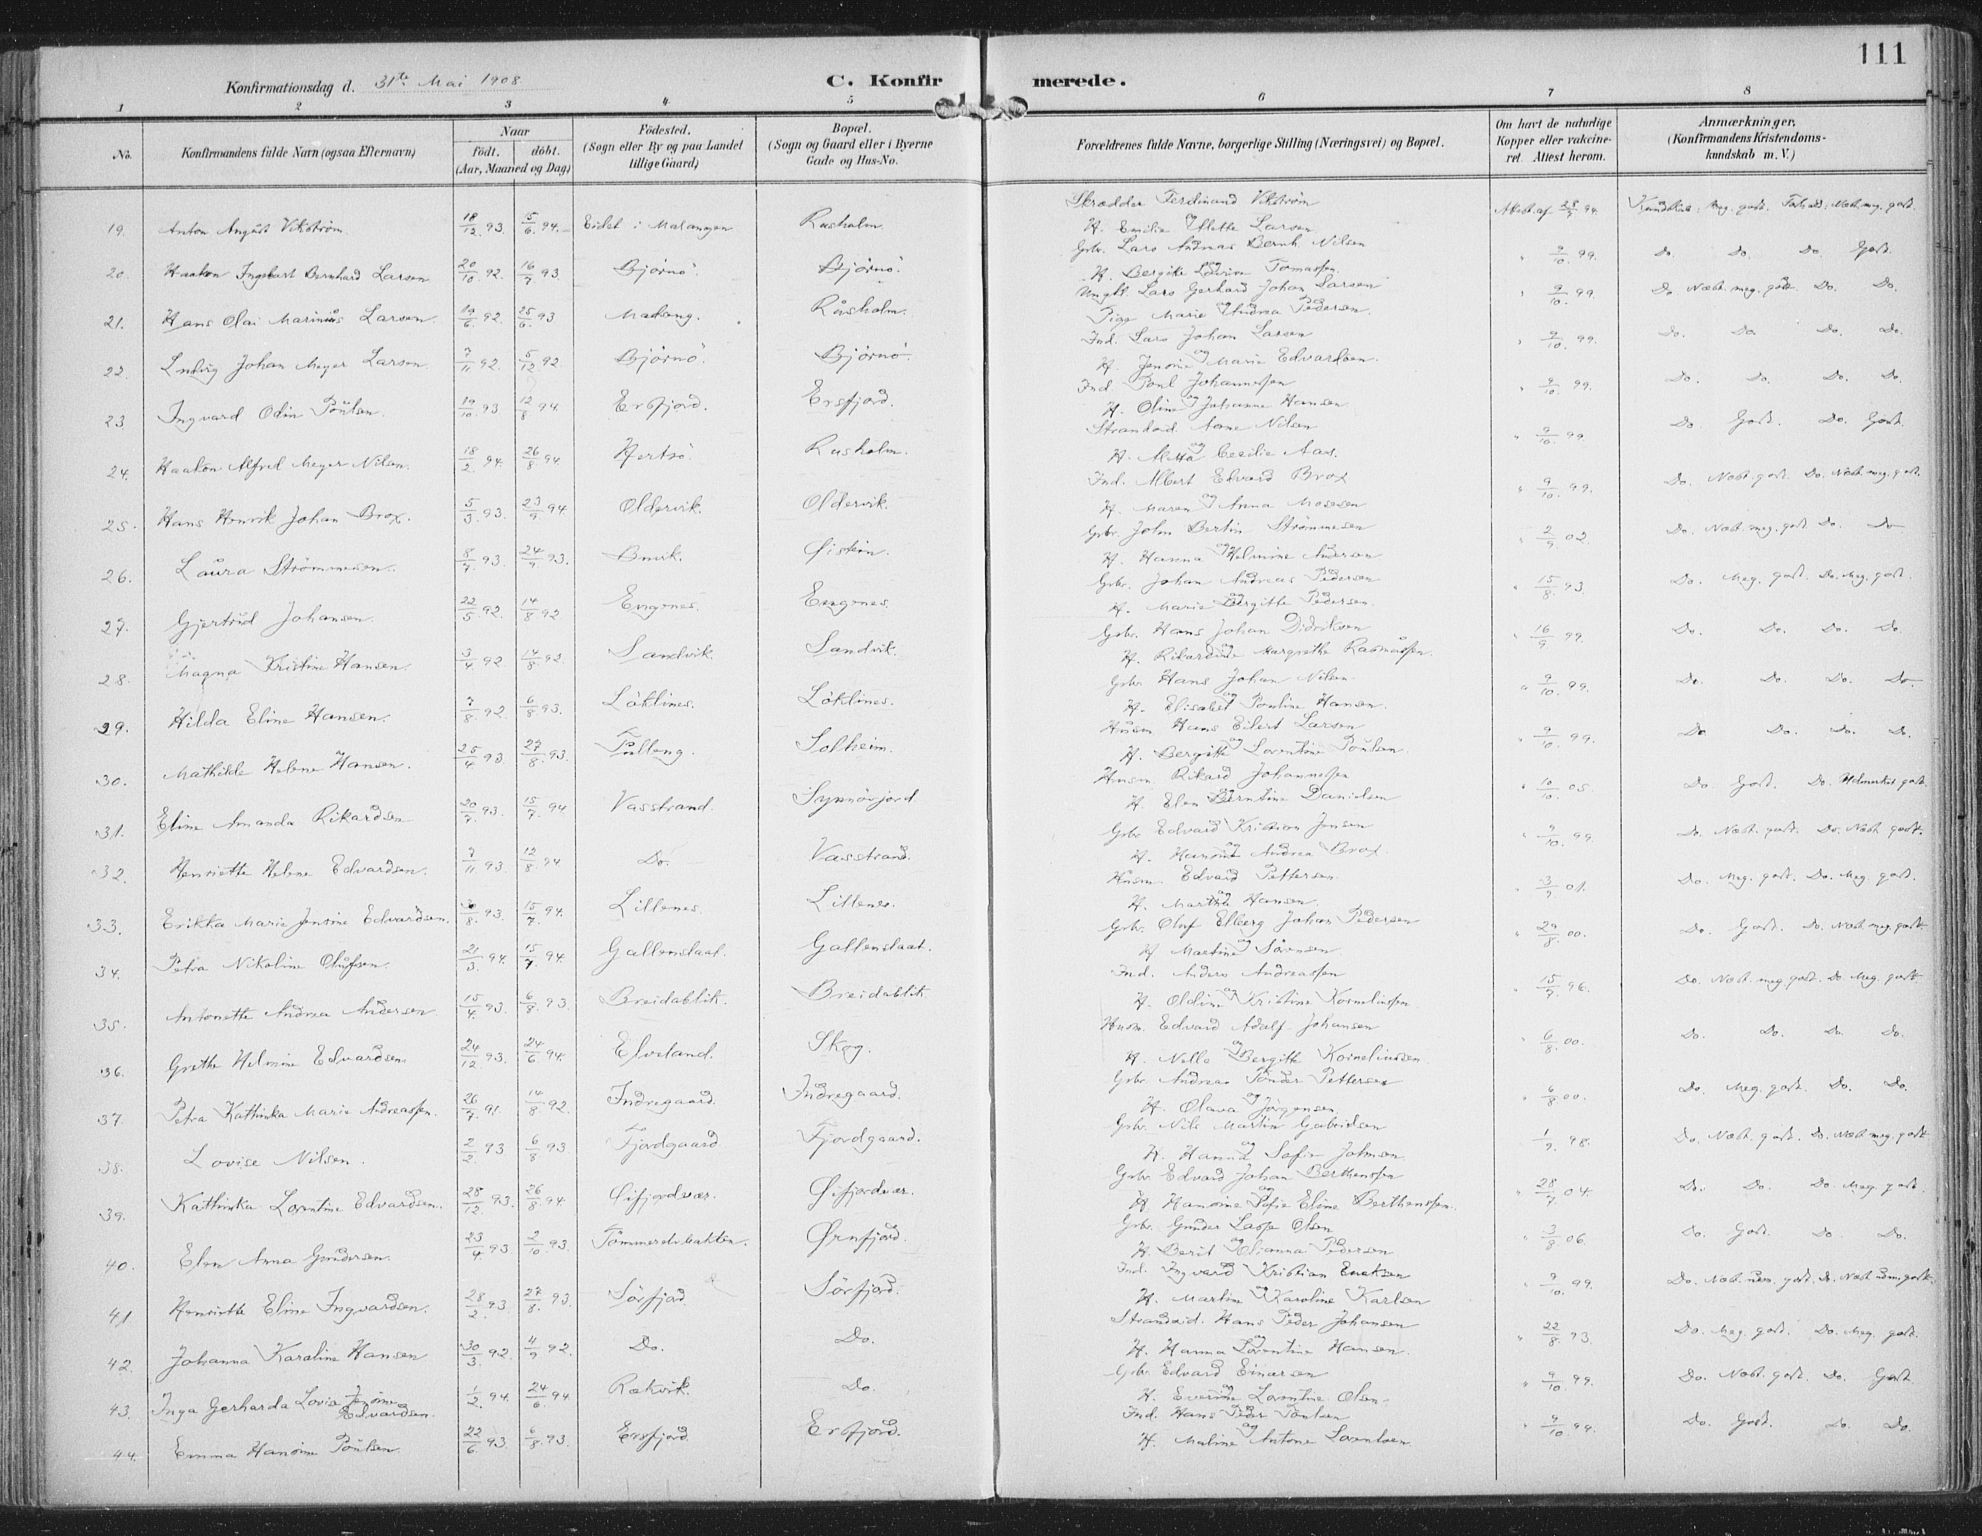 111
Konfirmationsdag d. 31te Mai 1908.
C. Konfirmerede.
1 2 3 4 5 6 7 8
No.
Konfirmandens fulde Navn (ogsaa Efternavn)
Naar
födt. döbt.
(Aar, Maaned og Dag)
Födested.
(Sogn eller By og paa Landet tillige Gaard)
Bopæl.
(Sogn og Gaard eller i Byerne Gade og Hus-No.
Forældrenes fulde Navne, borgerlige Stilling (Næringsvei) og Bopæl.
Om havt de naturlige Kopper eller vakcineret. Attest herom.
Anmærkninger,
(Konfirmandens Kristendomskundskab m. V.)
19. Anton August Vikström. 18/12 93. 5/6 94. Eidet i Malangen Rusholm. Skrædder Ferdinand Vikström og H. Emilie Larsen Attest af 28/9 94. Kundskab: Meg. godt.
20. Haakon Ingebart Bernhard Larsen 20/10 92. 16/7 93 Björnö. Björnö. Grbr. Lars Andreas Bernh. Nilsen og H. Bergitte Tomassen. " 9/10 99. Do. Do. Do. Godt.
21. Hans Olai Marinius Larsen. 19/6 92 25/6 93 Rusholm. Ungkl. Lars Gerhard Johan Larsen og Pige Marie Andrea Pedersen. " 9/10 99. Do. Næst. meg. godt. Do. Do.
22. Ludvig Johan Meyer Larsen. 7/11 92. 5/12 92. Björnö. Björnö. Ind. Lars Johan Larsen og H. Jensine Marie Edvardsen. " 9/10 99. Do. Do. Do. Do.
23. Ingvard Odin Pöulsen. 19/10 93 12/8 94. Ersfjord. Ersfjord. Ind. Poul Johannessen og H. Oline Johanne Hansen " 9/10 99. Do. Do. Do. Do.
24. Haakon Alfred Meyer Nilsen. 18/2 94. 26/8 94 Hertsö. Rusholm. Strandsid. Arne Nilsen og H. Cecilie Aas. " 9/10 99 Do. Godt. Do. Godt.
25. Hans Henrik Johan Brox. 5/3 93. 23/9 94 Oldervik. Oldervik. Ind. Albert Edvard Brox og H. Maren Anna Mosesen " 9/10 99. Do. Næst. godt. Do. Næst. meg. godt.
26. Laura Strömmesen. 8/7 93. 24/9 93. Burk. Öistein. Grbr. John Bertin Strömmesen og H. Hanna Helmine Andersen " 2/9 02. Do. Næst. meg. godt Do. Do
27. Gjertrud Johansen. 22/5 92. 14/8 92 Engenes. Engenes. Grbr. Johan Andreas Pedersen og H. Marie Bergitte Pedersen. " 15/8 93. Do. Meg. godt. Do. Meg. godt.
28. Magna Kristine Hansen. 3/4 92. 14/8 92. Sandvik. Sandvik. Grbr. Hans Johan Didriksen og H. Rikardine Margrethe Rasmussen. " 16/9 99. Do. Do. Do. Do.
29. Hilda Eline Hansen. 7/8 92 6/8 93. Löklines. Löklines. Grbr. Hans Johan Nilsen og H. Elisabet Pouline Hansen. " 9/10 99. Do. Do. Do. Do.
30. Mathilde Helene Hansen. 25/4 93. 27/8 93. Tulleng. Solheim. Husm. Hans Eilert Larsen og H. Bergitte Lorentine Poulsen. " 9/10 99. Do Do. Do. Do.
31. Eline Amanda Rikardsen 20/7 93. 15/7 94 Vasstrand. Husm. Rikard Johannessen og H. Elen Berntine Danielsen " 10/10 05. Do Godt. Do. Udmerket godt.
32. Henriette Helene Edvardsen. 7/11 93. 12/8 94 Do. Vasstrand. Grbr. Edvard Kristian Jensen og H. Hansine Andrea Brox. " 9/10 99. Do. Næst. godt. Do. Næst godt.
33. Erikka Marie Jensine Edvardsen. 93. 15/7 94. Lillenes. Lillenes. Husm. Edvard Pettersen og H. Martha Hansen. " 3/9 01. Do. Meg. godt. Do. Meg. godt.
34. Petra Nikoline Olufsen. 21/3 94. 15/7 94. Gallenslaat. Gallenslaat. Grbr. Oluf Elberg Johan Pedersen og H Martine Sörensen " 29/8 00. Do. Godt. Do. Næst. meg. godt
35. Antonette Andrea Andersen 15/4 93. 6/8 93. Breidablik. Breidablik. Ind. Anders Andreassen og H. Oldine Kristine Korneliussen " 15/9 96. Do. Næst meg. godt. Do. Meg. godt
36. Grethe Helmine Edvardsen. 24/12 93. 24/6 94. Elveland. Skog. Husm. Edvard Adolf Johansen og H. Nella Bergitte Korneliussen. " 6/8 00. Do. Do. Do. Do.
37. Petra Kathinka Marie Andreassen. 26/7 91. 14/8 92. Indregaard. Indregaard. Grbr. Andreas Pettersen og H. Olava Jörgensen " 6/8 00. Do. Meg. godt. Do. Do.
38. Lovise Nilsen. 2/2 93 6/8 93 Fjordgaard Fjordgaard. Grbr. Nils Martin Gabrielsen og H. Hanna Sofie Johnsen " 1/9 98. Do. Næst. godt. Do. Næst meg. godt
39. Kathinka Lorentine Edvardsen. 28/12 93. 26/8 94. Öifjordvær. Öifjordvær. Grbr. Edvard Johan Berthenssen og H. Hansine Sofie Eline Berthenssen. " 28/7 04. Do. Do. Do. Meg. godt.
40. Elen Anna Gundersen. 23/4 93. 2/10 93. Örnfjord. Grbr. Gunder Lasse Olsen og H. Berit Pedersen " 3/8 06. Do. Godt. Do. Do.
41. Henriette Eline Ingvardsen. 28/2 93. 27/8 93. Sörfjord Sörfjord. Ind. Ingvard Kristian Enoksen og H. Martine Karoline Karlsen " 9/10 99. Do. Næst. Do. Næst
42. Johanna Karoline Hansen 30/3 92. 4/9 92. Do. Do. Strandsid. Hans Peder Johansen og H. Hanna Lorentine Hansen. " 22/8 93. Do. Meg. godt. Do. Meg. godt.
43. Inga Gerharda Lovise Jensine Edvardsen. 1/2 94. 24/6 94 Rækvik. Do. Grbr. Edvard Einarsen og H. Everine Lorentine Olsen. " 9/10 99. Do. Næst. godt. Do. Godt.
44. Emma Hansine Pöulsen. 22/6 93. 6/8 93. Ersfjord Ersfjord. Ind. Hans Peder Poulsen og H. Maline Antone Lorentsen. " 9/10 99. Do. Godt. Do. Do.